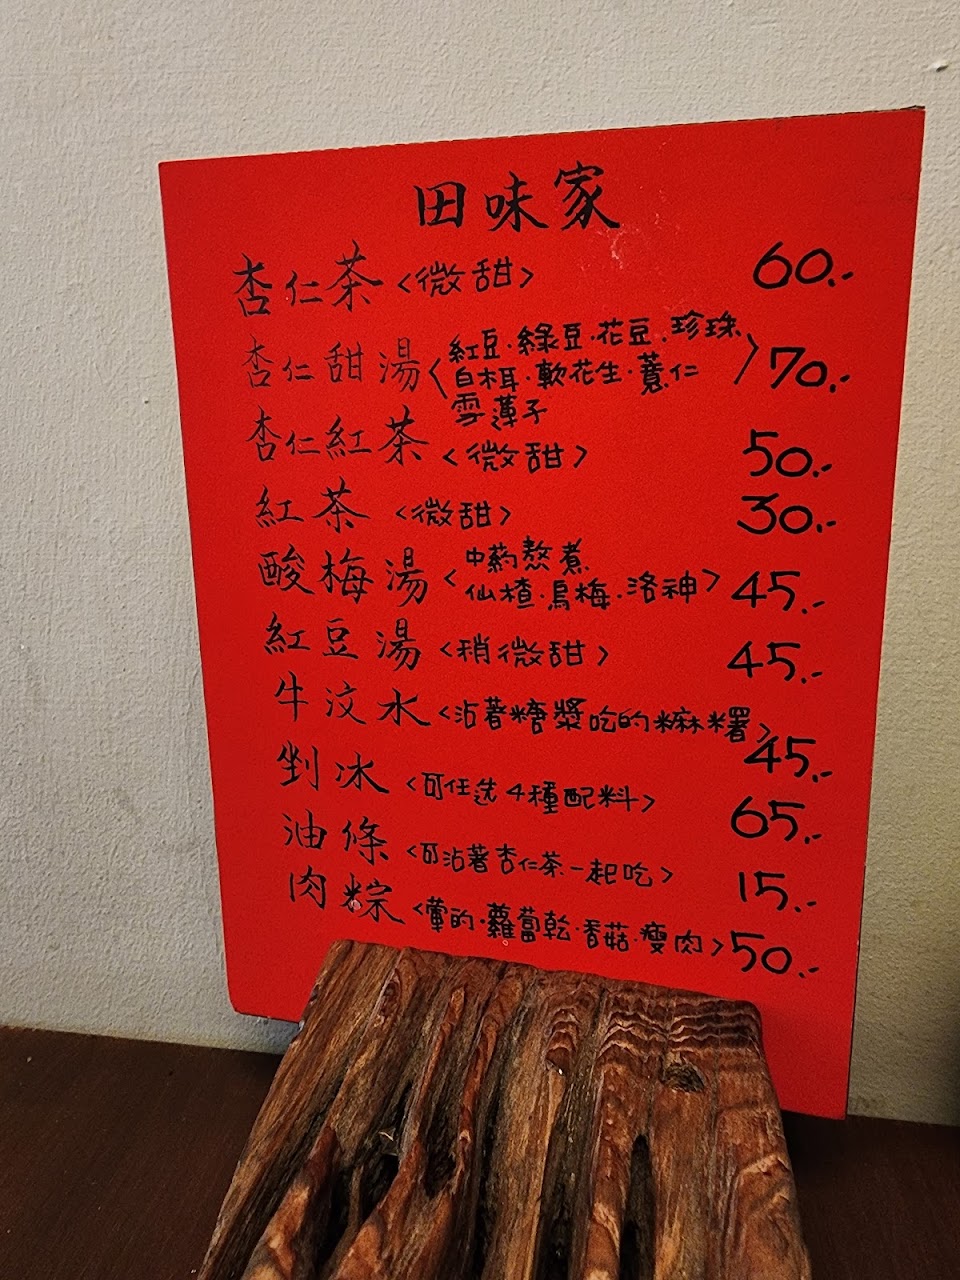 田味家
杏仁茶<微甜> 60.-
杏仁甜湯<紅豆.綠豆.花豆.珍珠
白木耳.軟花生.薏仁
雪蓮子> 70.-
杏仁紅茶<微甜> 50.-
紅茶<微甜> 30.-
酸梅湯<中药熬煮
仙楂.烏梅.洛神> 45.-
紅豆湯<稍微甜> 45.-
牛汶水<沾著糖漿吃的麻糬> 45.-
剉冰<可任选4種配料> 65.-
油條<可沾著杏仁茶一起吃> 15.-
肉粽<葷的.蘿蔔乾.香菇.瘦肉> 50.-